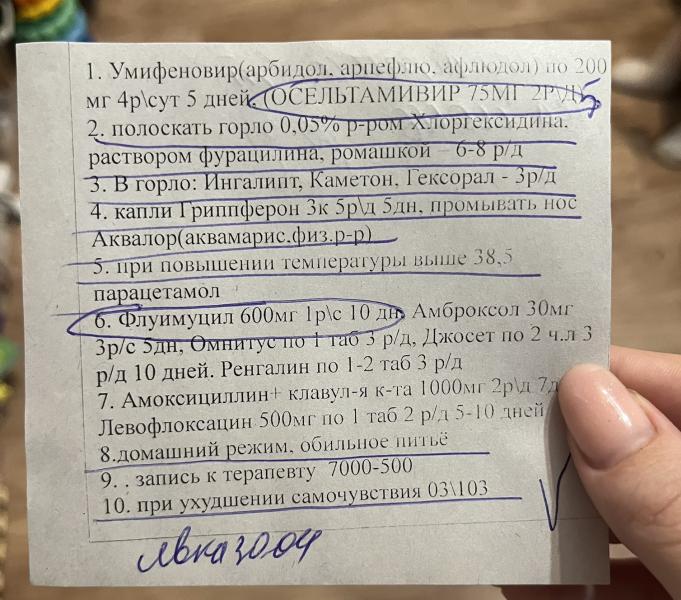 1. Умифеновир(арбидол, арпефлю, афлюдол) по 200
мг 4р\сут 5 дней. (ОСЕЛЬТАМИВИР 75МГ 2Р\Д) 5
2. полоскать горло 0,05% р-ром Хлоргексидина.
раствором фурацилина, ромашкой – 6-8 р/д
3. В горло: Ингалипт, Каметон, Гексорал - 3р/д
4. капли Гриппферон 3к 5р\д 5дн, промывать нос
Аквалор(аквамарис.физ.р-р)
5. при повышении температуры выше 38,5
парацетамол
6. Флуимуцил 600мг 1р\с 10 дн. Амброксол 30мг
3р/с 5дн, Омнитус по 1 таб 3 р/д, Джосет по 2 ч.л 3
р/д 10 дней. Ренгалин по 1-2 таб 3 р/д
7. Амоксициллин+ клавул-я к-та 1000мг 2р\д 7д
Левофлоксацин 500мг по 1 таб 2 р/д 5-10 дней
8.домашний режим, обильное питьё
9. . запись к терапевту 7000-500
10. при ухудшении самочувствия 03\103